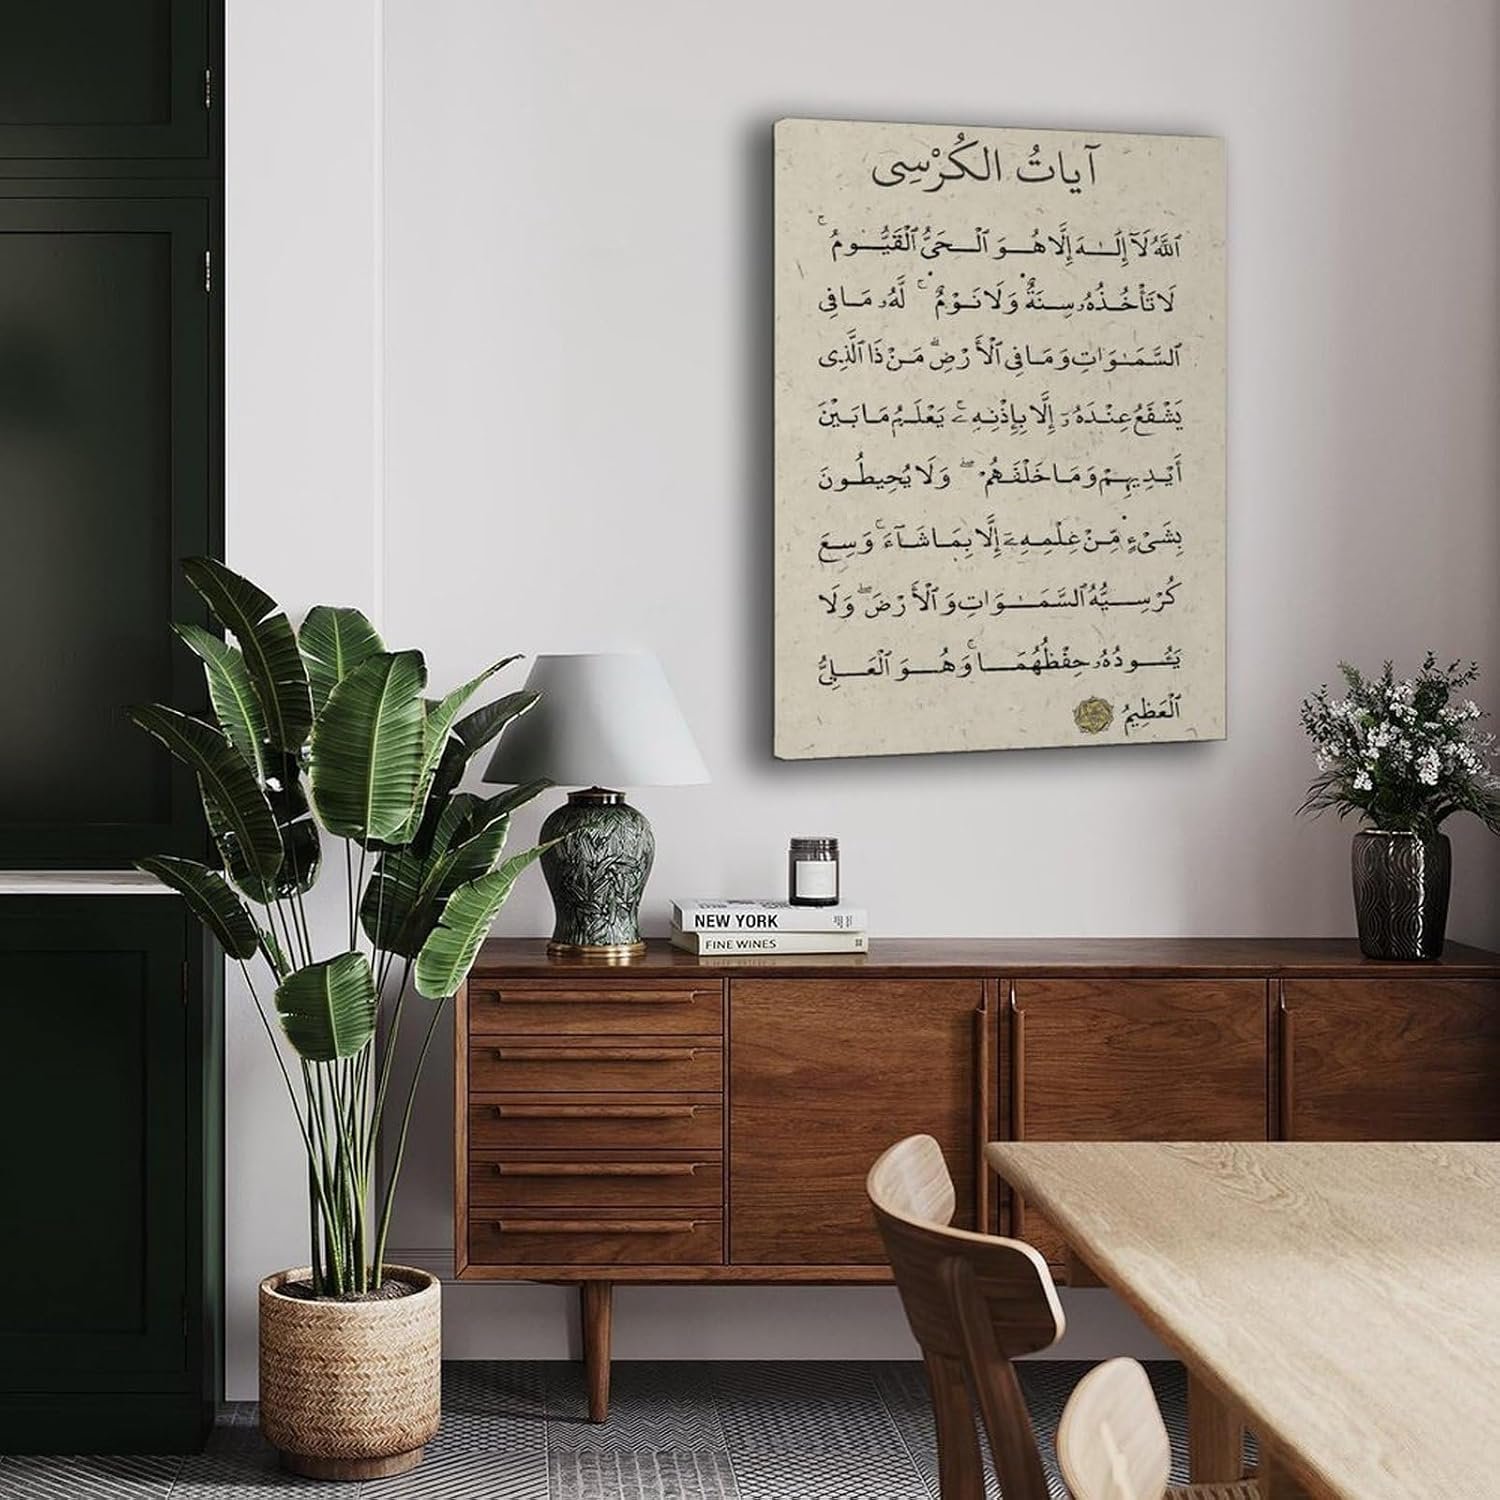 آياتُ الكُرْسِى
ٱللَّهُ لَآ إِلَـٰهَ إِلَّا هُوَ ٱلْحَىُّ ٱلْقَيُّومُ ۚ
لَا تَأْخُذُهُۥ سِنَةٌ وَلَا نَوْمٌ ۚ لَّهُۥ مَا فِى
ٱلسَّمَـٰوَٰتِ وَمَا فِى ٱلْأَرْضِ ۗ مَنْ ذَا ٱلَّذِى
يَشْفَعُ عِنْدَهُۥٓ إِلَّا بِإِذْنِهِۦ ۚ يَعْلَمُ مَا بَيْنَ
أَيْدِيهِمْ وَمَا خَلْفَهُمْ ۖ وَلَا يُحِيطُونَ
بِشَىْءٍ مِّنْ عِلْمِهِۦٓ إِلَّا بِمَا شَآءَ ۚ وَسِعَ
كُرْسِيُّهُ ٱلسَّمَـٰوَٰتِ وَٱلْأَرْضَ ۖ وَلَا
يَـُٔودُهُۥ حِفْظُهُمَا ۚ وَهُوَ ٱلْعَلِىُّ
ٱلْعَظِيمُ
NEW YORK
FINE WINES